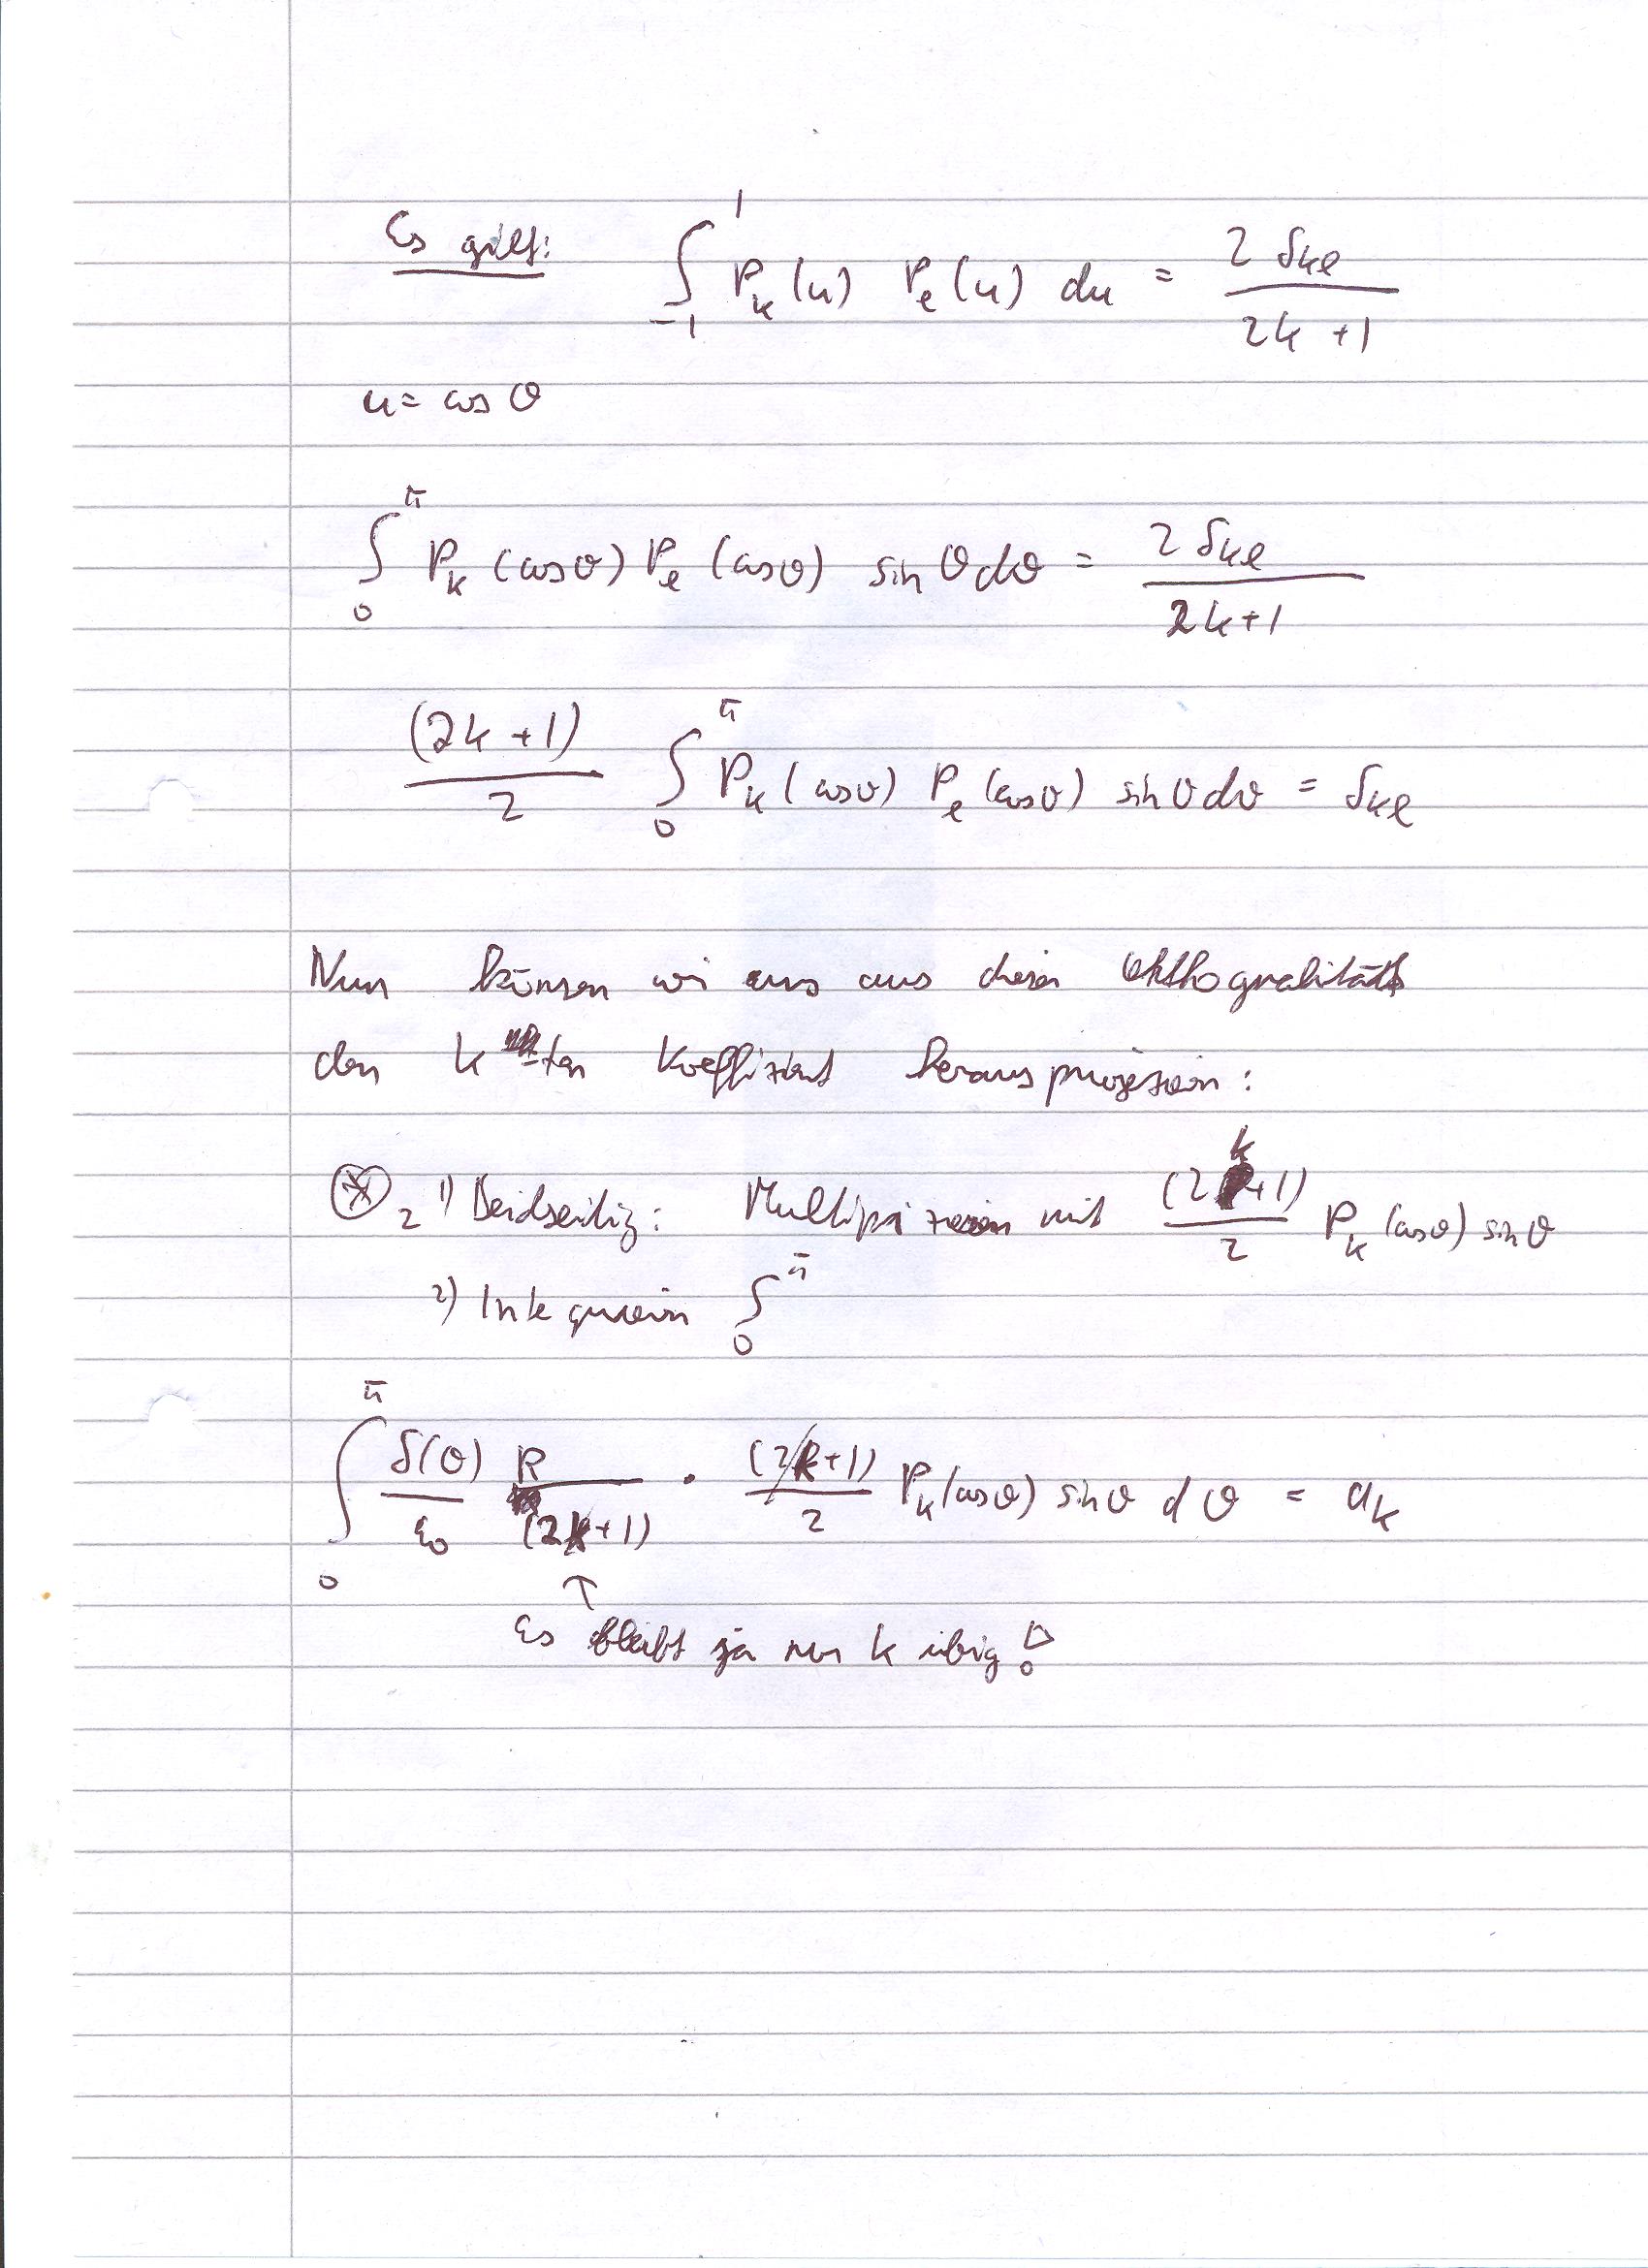 Es gilt: ∫_{-1}^{1} P_k(u) P_l(u) du = 2 δ_{kl} / (2k+1)
u = cos θ
∫_0^π P_k (cos θ) P_l (cos θ) sin θ dθ = 2 δ_{kl} / (2k+1)
(2k+1)/2 ∫_0^π P_k (cos θ) P_l (cos θ) sin θ dθ = δ_{kl}
Nun können wir uns aus dieser
den k-ten Koeffizient herausprojezieren:
⊛_2 1) Beidseitig: Multiplizieren mit (2k+1)/2 P_k (cos θ) sin θ
2) Integrieren ∫_0^π
∫_0^π δ(θ)/ε_0 R/(2k+1) · (2k+1)/2 P_k (cos θ) sin θ dθ = a_k
↑
Es bleibt ja nur k übrig!